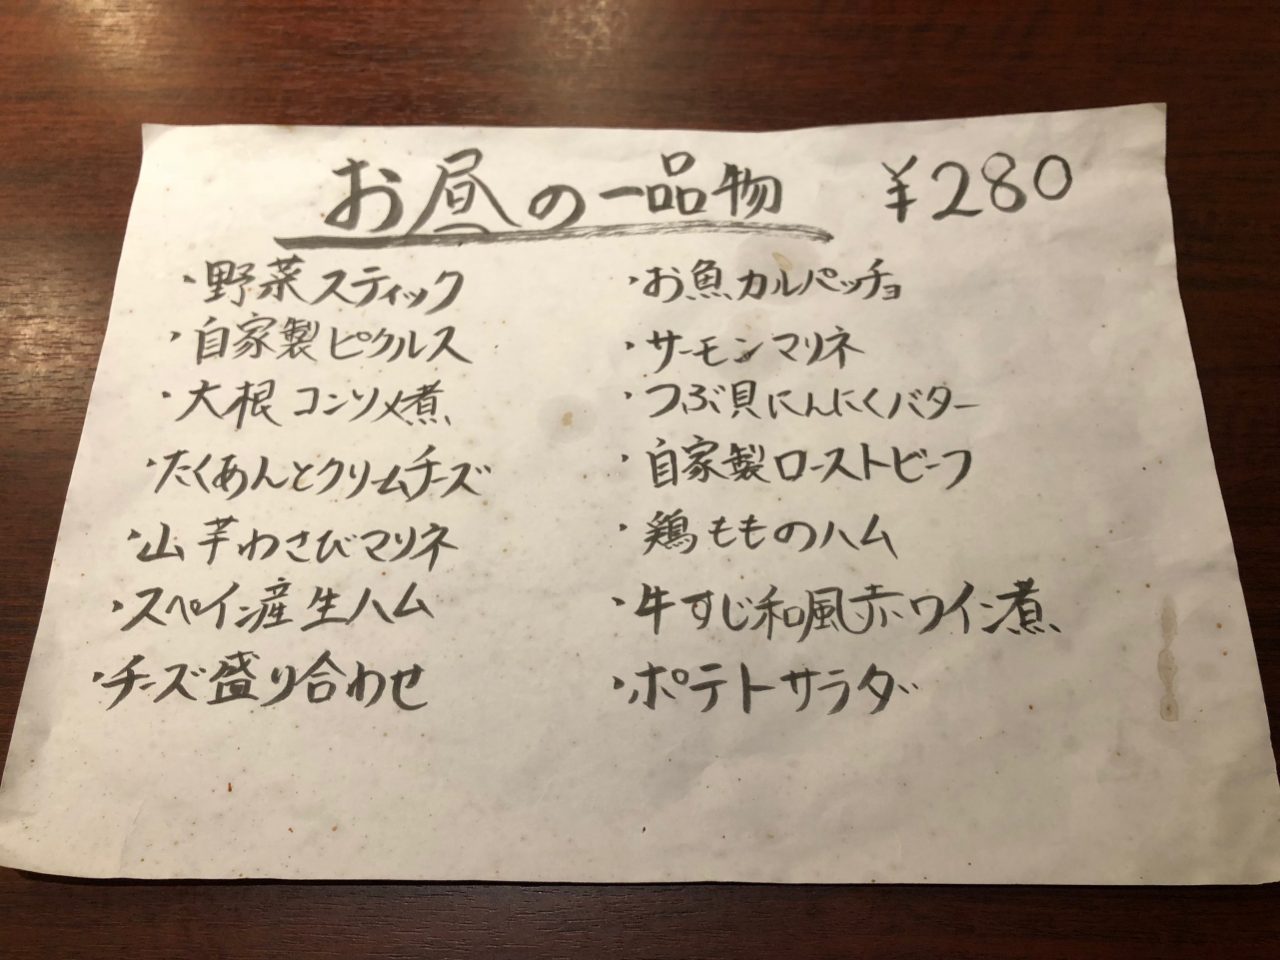 お昼の一品物 ¥280
・野菜スティック
・自家製ピクルス
・大根コンソメ煮
・たくあんとクリームチーズ
・山芋わさびマリネ
・スペイン産生ハム
・チーズ盛り合わせ
・お魚カルパッチョ
・サーモンマリネ
・つぶ貝にんにくバター
・自家製ローストビーフ
・鶏もものハム
・牛すじ和風赤ワイン煮
・ポテトサラダ